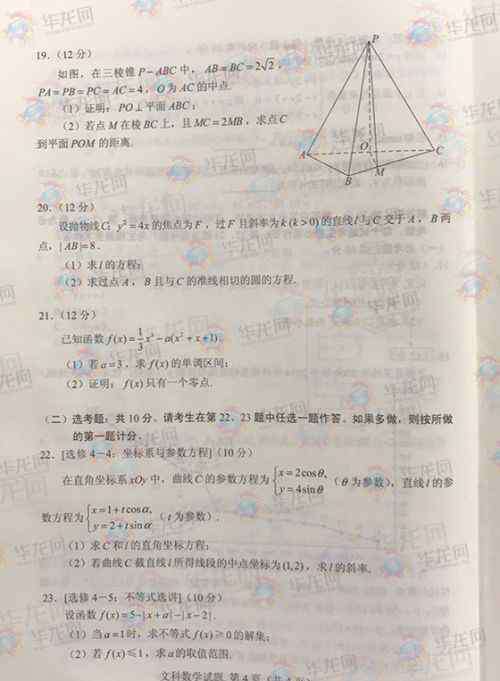 19.（12分）
如图，在三棱锥 P－ABC 中，AB＝BC＝2√2，
PA＝PB＝PC＝AC＝4，O 为 AC 的中点.
（1）证明：PO⊥平面 ABC；
（2）若点 M 在棱 BC 上，且 MC＝2MB，求点 C
到平面 POM 的距离.
P
A
O
C
B
M
20.（12分）
设抛物线 C：y²＝4x 的焦点为 F，过 F 且斜率为 k (k＞0) 的直线 l 与 C 交于 A，B 两
点，|AB|＝8.
（1）求 l 的方程；
（2）求过点 A，B 且与 C 的准线相切的圆的方程.
21.（12分）
已知函数 f(x)＝1/3 x³－a(x²＋x＋1).
（1）若 a＝3，求 f(x) 的单调区间；
（2）证明：f(x) 只有一个零点.
（二）选考题：共10分。请考生在第22、23题中任选一题作答。如果多做，则按所做
的第一题计分.
22. [选修4－4：坐标系与参数方程]（10分）
在直角坐标系 xOy 中，曲线 C 的参数方程为 {x＝2cosθ, y＝4sinθ （θ 为参数），直线 l 的参
数方程为 {x＝1＋tcosα, y＝2＋tsinα （t 为参数）.
（1）求 C 和 l 的直角坐标方程；
（2）若曲线 C 截直线 l 所得线段的中点坐标为 (1, 2)，求 l 的斜率.
23. [选修4－5：不等式选讲]（10分）
设函数 f(x)＝5－|x＋a|－|x－2|.
（1）当 a＝1 时，求不等式 f(x)≥0 的解集；
（2）若 f(x)≤1，求 a 的取值范围.
文科数学试题 第4页（共4页）
华龙网